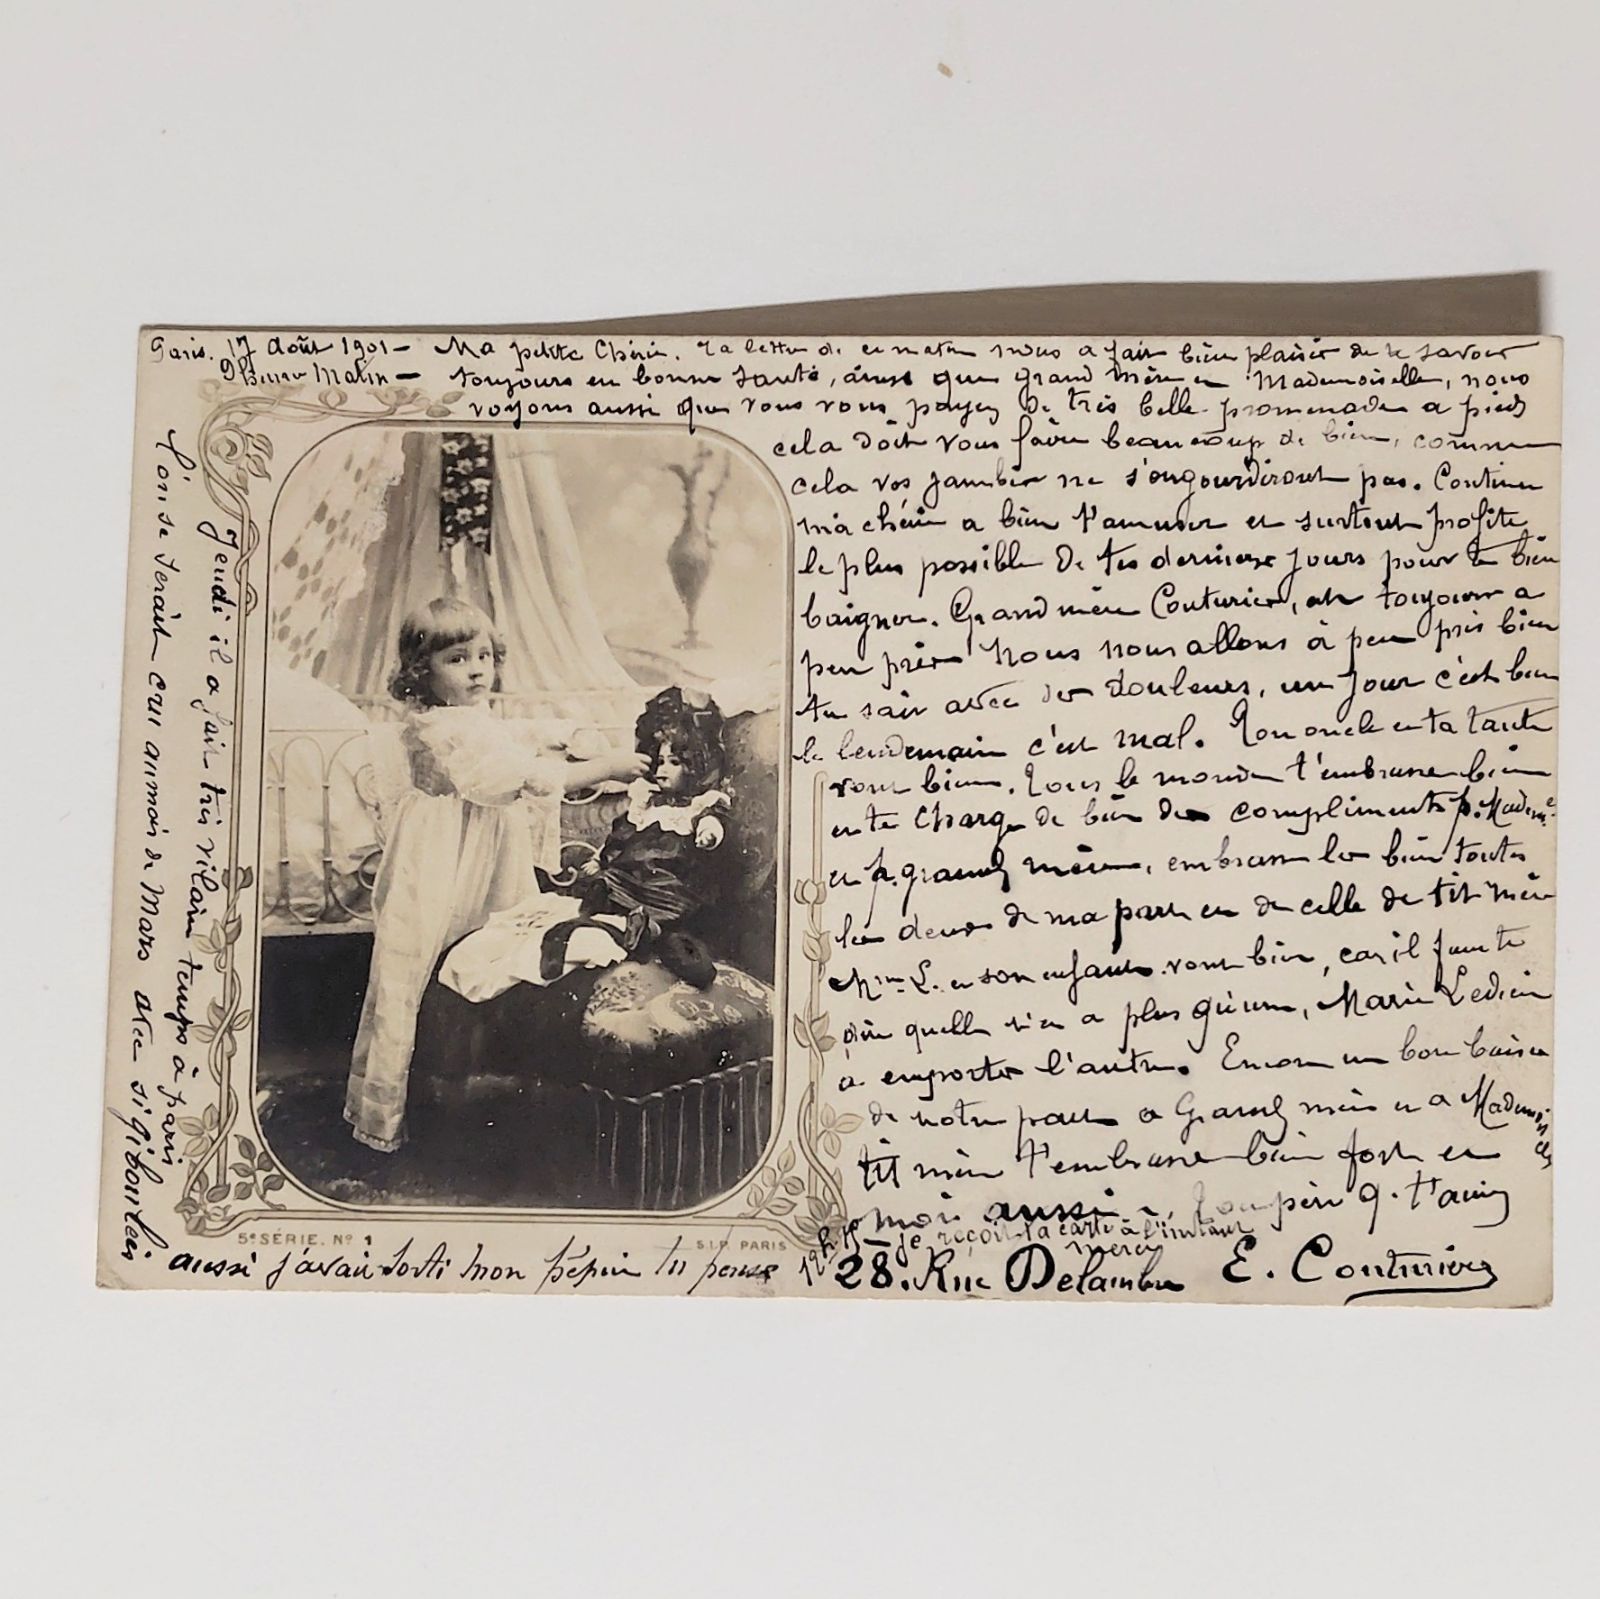 Paris. 17 Août 1901 - Ma petite Chérie. Ta lettre de ce matin nous a fait bien plaisir de te savoir
9 heures Matin - toujours en bonne santé, ainsi que grand mère et Mademoiselle, nous
voyons aussi que vous vous payez de très belle promenades a pieds
cela doit vous faire beaucoup de bien, comme
cela vos jambes ne s'engourdiront pas. Continue
ma chérie a bien t'amuser et surtout profite
le plus possible de tes derniers jours pour te bien
baigner. Grand mère Couturier, va toujours a
peu près nous nous allons à peu près bien
tu sais avec des douleurs, un jour c'est bien
le lendemain c'est mal. Ton oncle et ta tante
vont bien. Tous le monde t'embrasse bien
et te charge de bien des compliments p. Madem.lle
et p. grand mère, embrasse les bien toutes
les deux de ma part et de celle de tit mère
Mme L. et son enfant vont bien, car il faut te
dire quelle n'en a plus qu'un, Marie Ledien
a emporter l'autre. Encore un bon baiser
de notre part a Grand mère et a Mademoiselle
tit mère t'embrasse bien fort et
moi aussi. Ton père q. t'aime
12h 15 - je reçois ta carte à l'instant
merci
28. Rue Delambre E. Couturier
Jeudi il a fait très vilain temps à paris
l'on se serait cru au mois de Mars avec si giboulées
aussi j'avais sorti mon pépin tu penses
5e SÉRIE. No 1
S.I.P. PARIS